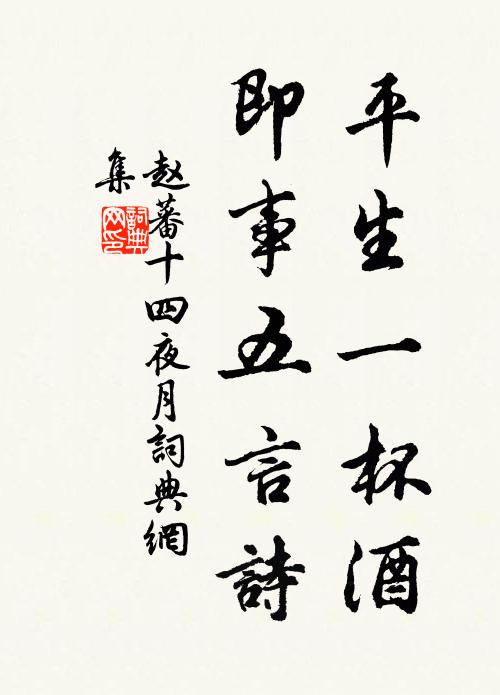 平生一杯酒
即事五言詩
赵蕃十四夜月詞典網
集
詞典
网印